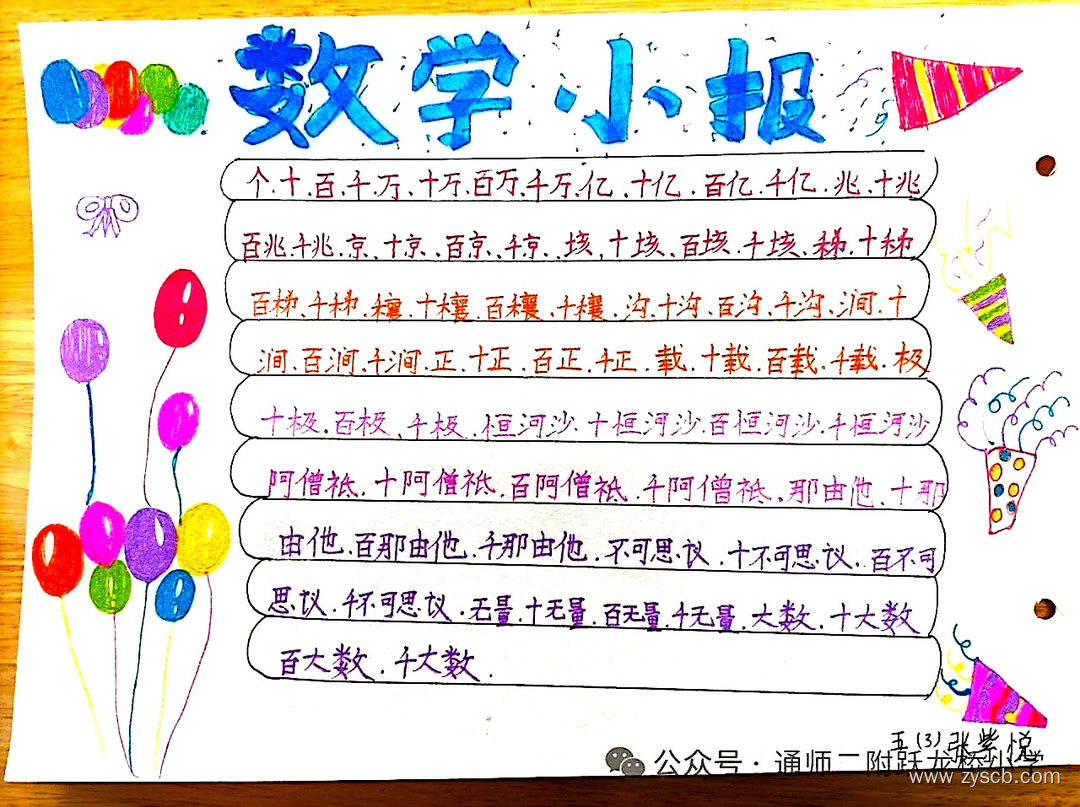 数学小报
个.十.百.千.万.十万.百万.千万.亿.十亿.百亿.千亿.兆.十兆
百兆.千兆.京.十京.百京.千京.垓.十垓.百垓.千垓.秭.十秭
百秭.千秭.穰.十穰.百穰.千穰.沟.十沟.百沟.千沟.涧.十
涧.百涧.千涧.正.十正.百正.千正.载.十载.百载.千载.极
十极.百极.千极.恒河沙.十恒河沙.百恒河沙.千恒河沙
阿僧祇.十阿僧祇.百阿僧祇.千阿僧祇.那由他.十那
由他.百那由他.千那由他.不可思议.十不可思议.百不可
思议.千不可思议.无量.十无量.百无量.千无量.大数.十大数
百大数.千大数.
五(3)张紫悦
公众号·通师二附跃龙桥小学
www.zyscb.com